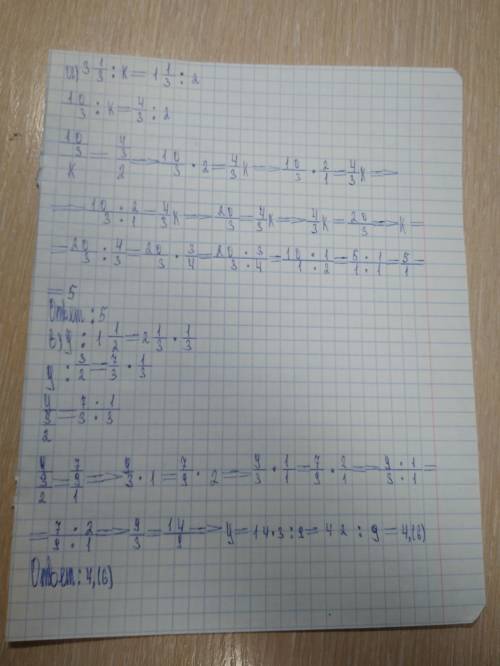 а) 3 1/3 : к = 1 1/3 : 2
10/3 : к = 4/3 : 2
10/3 / к = 4/3 / 2 => 10/3 · 2 = 4/3 к => 10/3 · 2/1 = 4/3 к =>
=> 10 · 2 / 3 · 1 = 4/3 к => 20/3 = 4/3 к => 4/3 к = 20/3 => к =
= 20/3 : 4/3 = 20/3 · 3/4 = 20 · 3 / 3 · 4 = 10 · 1 / 1 · 2 = 5 · 1 / 1 · 1 = 5/1 =
= 5
Ответ: 5
в) у : 1 1/2 = 2 1/3 · 1/3
у : 3/2 = 7/3 · 1/3
у / 3/2 = 7 · 1 / 3 · 3
у / 3/2 = 7/9 / 1 => у/3 · 1 = 7/9 · 2 => у/3 · 1/1 = 7/9 · 2/1 => у · 1 / 3 · 1 =
= 7 · 2 / 9 · 1 => у/3 = 14/9 => у = 14 · 3 : 9 = 42 : 9 = 4,(6)
Ответ: 4,(6)